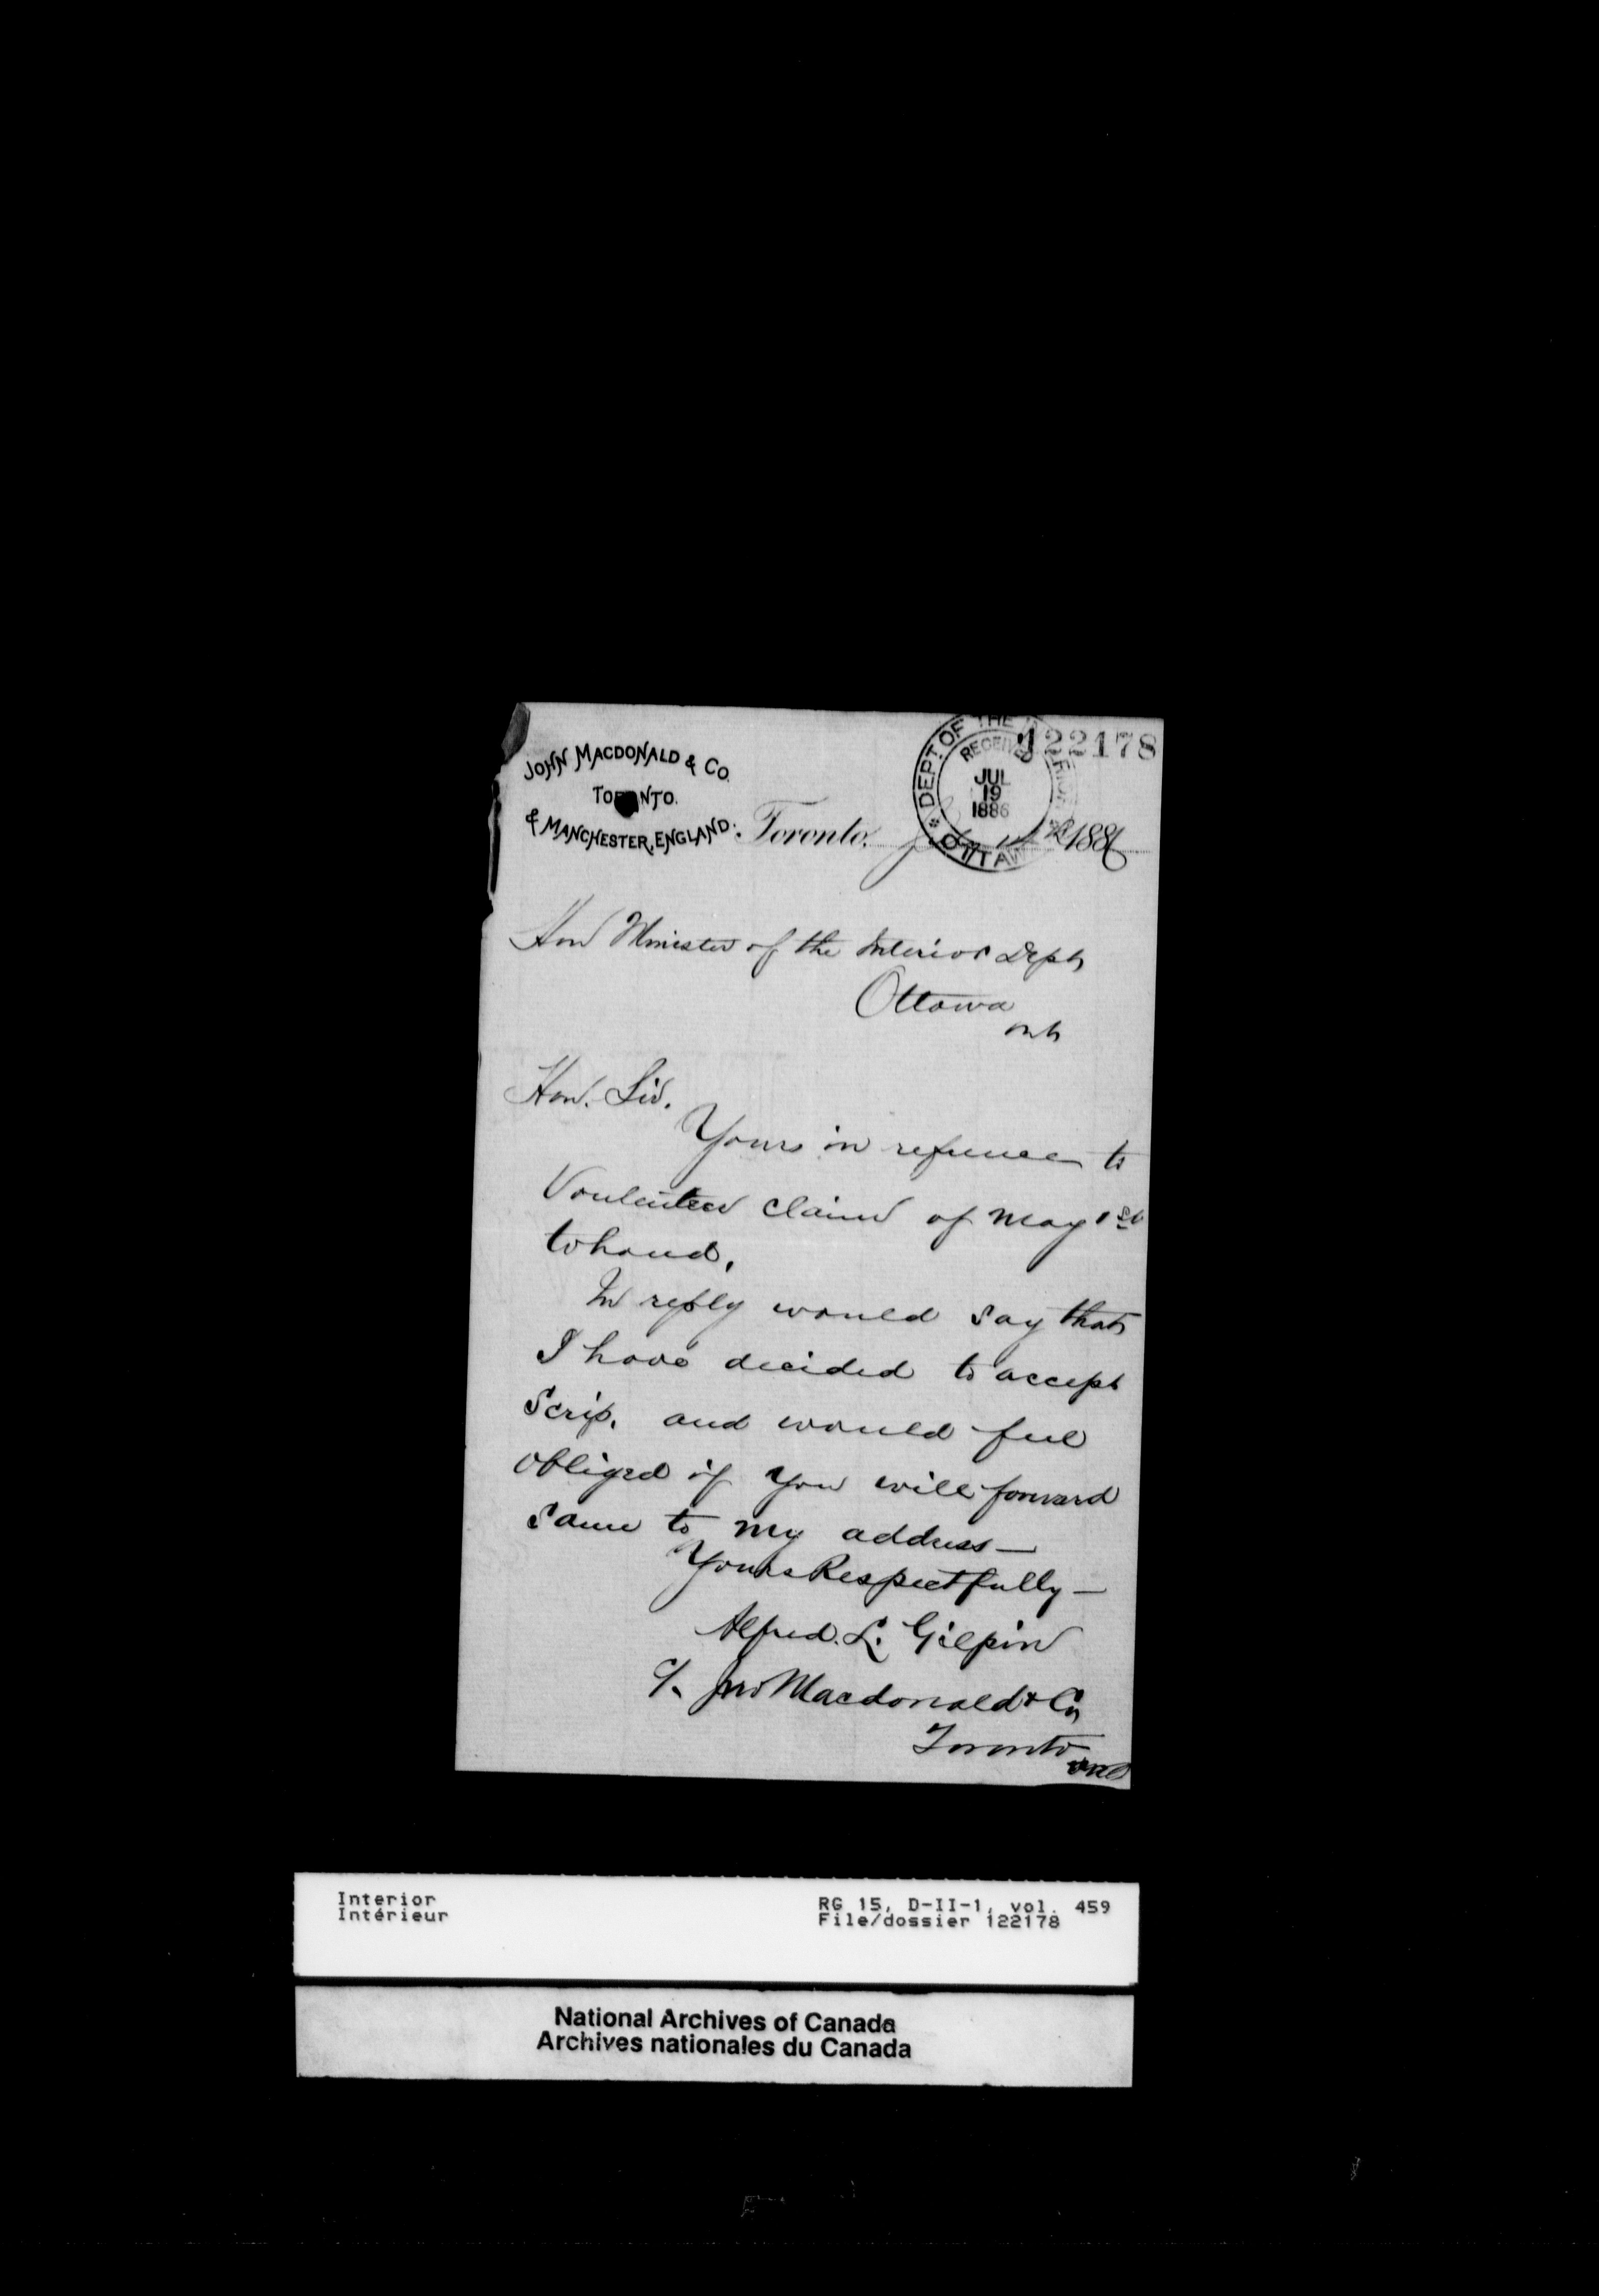 JOHN MACDONALD & CO.
TORONTO.
& MANCHESTER, ENGLAND.
DEPT. OF THE INTERIOR
RECEIVED
JUL
19
1886
OTTAWA
122178
Toronto, 1886
Hon Minister of the Interior Dept
Ottawa
Ont
Hon. Sir.
Yours in reference to
Vouleuteer claim of May 1st
to hand.
In reply would say that
I have decided to accept
Scrip. and would feel
obliged if you will forward
same to my address —
Yours Respectfully —
Alfred. L. Gilpin
c/. Jno Macdonald & Co
Toronto
Ont
Interior
Intérieur
RG 15, D-II-1, vol. 459
File/dossier 122178
National Archives of Canada
Archives nationales du Canada